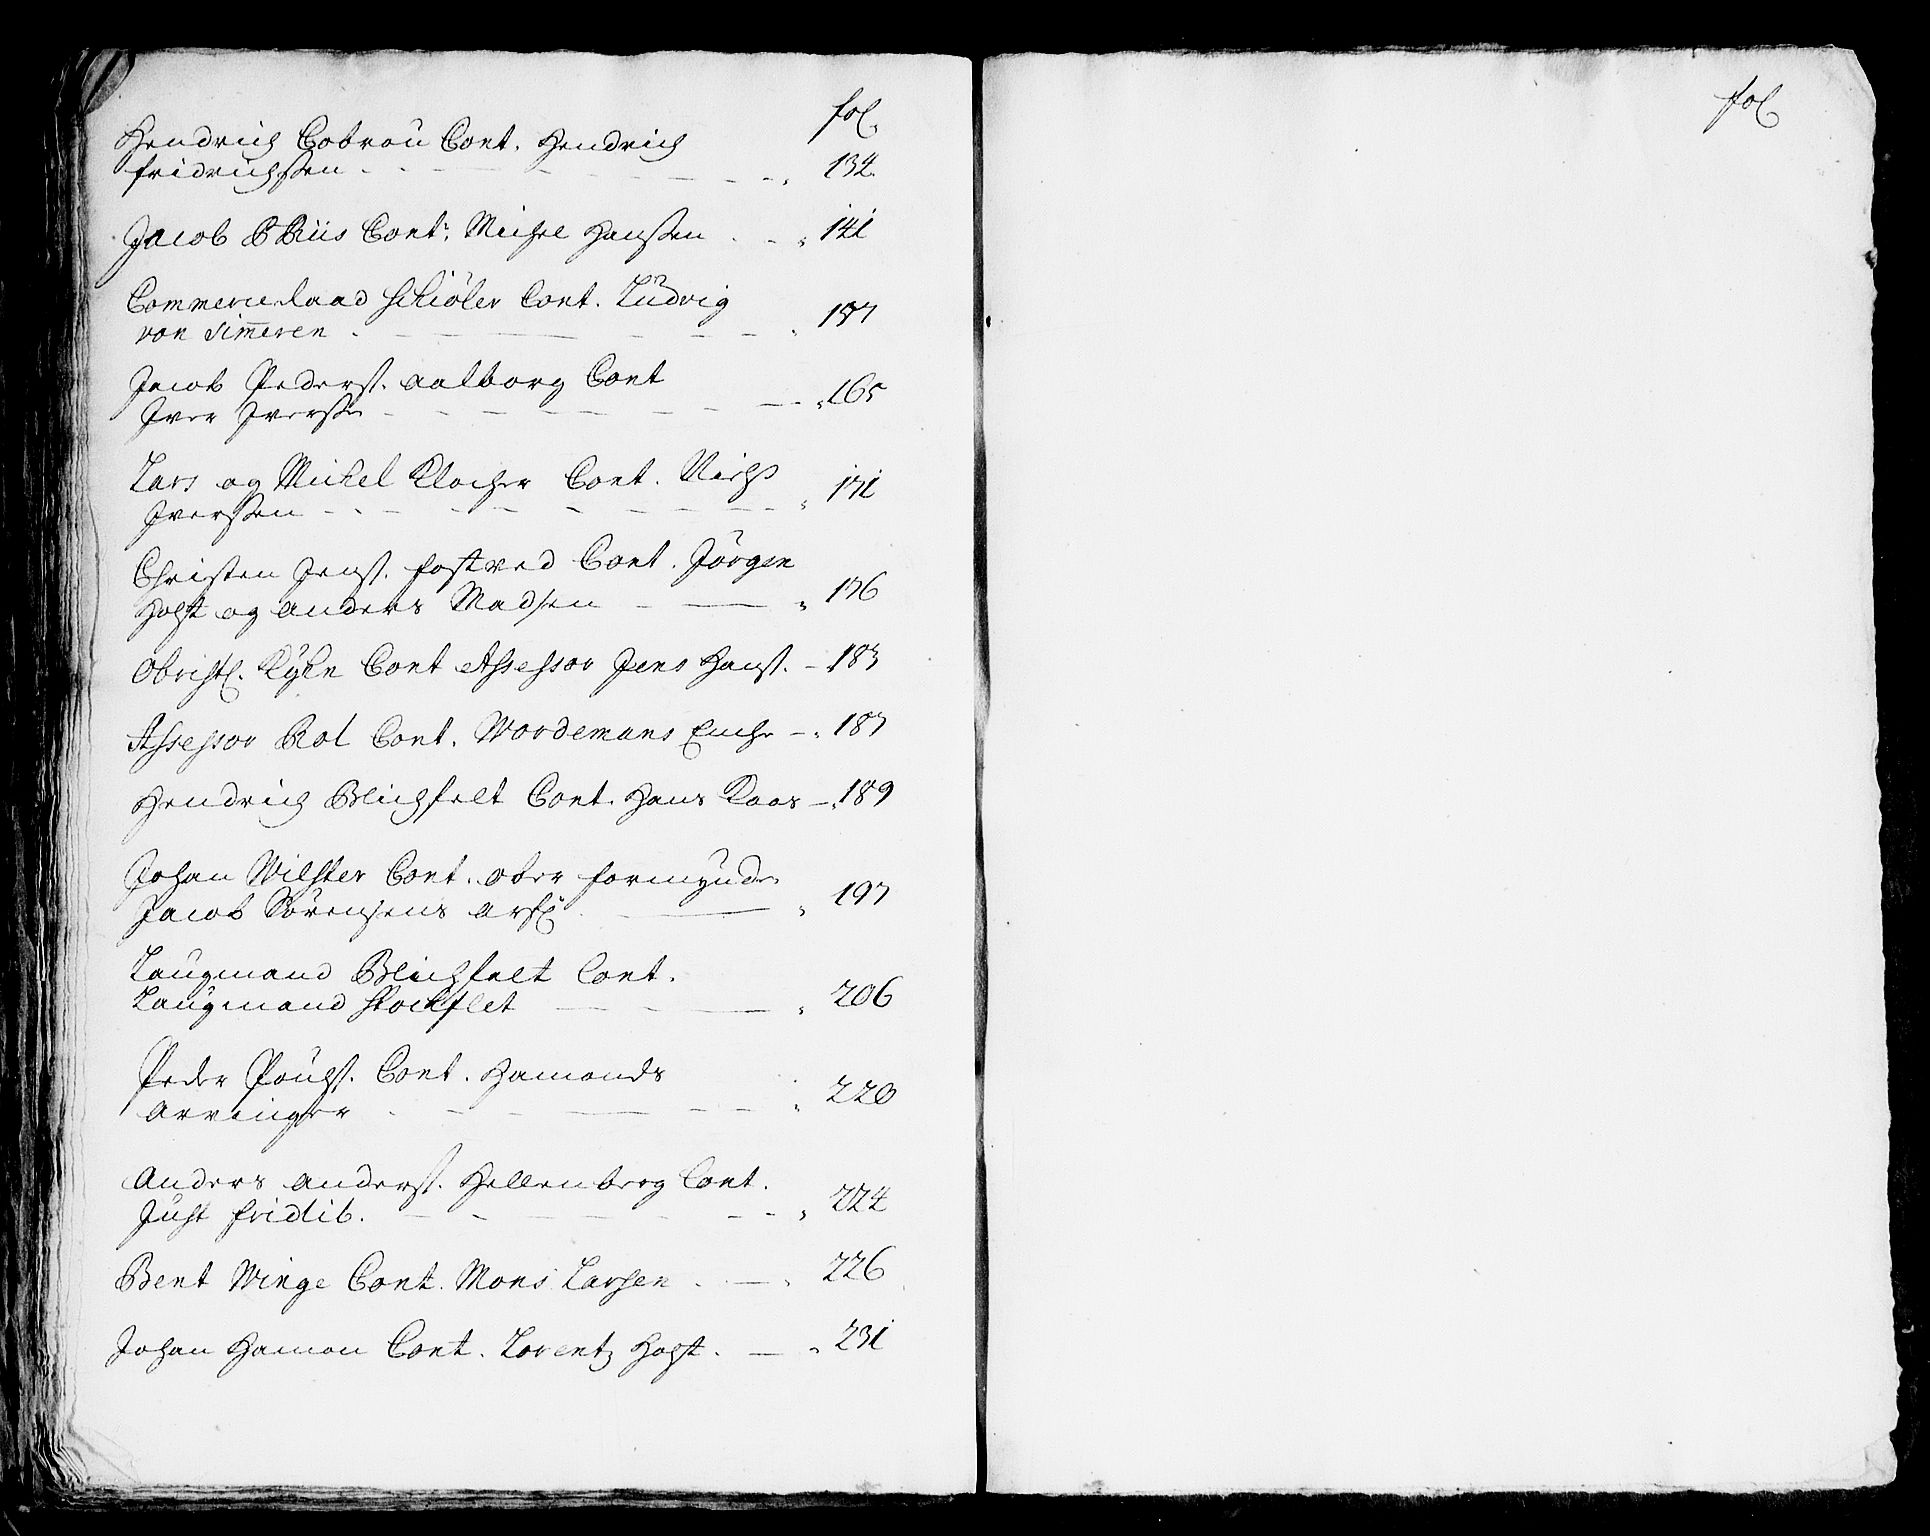 fol.
Hendrich Cobrou Cont. Hendrich
fridrichssen - - - - - - - - 134.
Jacob Riis Cont: Michel Hanssen - - 141
Commercie Raad Schiøler Cont. Ludvig
von Simeren - - - - - - - 157
Jacob Peders. Aalborg Cont
Iver Iverssen - - - - - - - 165
Lars og Michel Klocher Cont. Niels
Iverssen - - - - - - - - 171
Christen Jens. fostved Cont. Jørgen
Holst og Anders Madsen - - 176
Obristl. Kyhn Cont Assessor Jens Hans. - 183
Assessor Rol Cont. Wordemans Enche - 187
Hendrich Blichfelt Cont. Hans Kaas - 189
Johan Wilster Cont. ober formynder
Jacob Sørensens Arf: - 197
Laugmand Blichfelt Cont.
Laugmand Stockflet - - - 206
Peder Pouls. Cont. Hamonds
Arvinger - - - - - - 220
Anders Anders. Hellenberg Cont.
Just fridlib. - - - - - - - 224
Bent Winge Cont. Mons Larsen - - 226
Johan Hamon Cont. Lorentz Holst. - - 231
fol